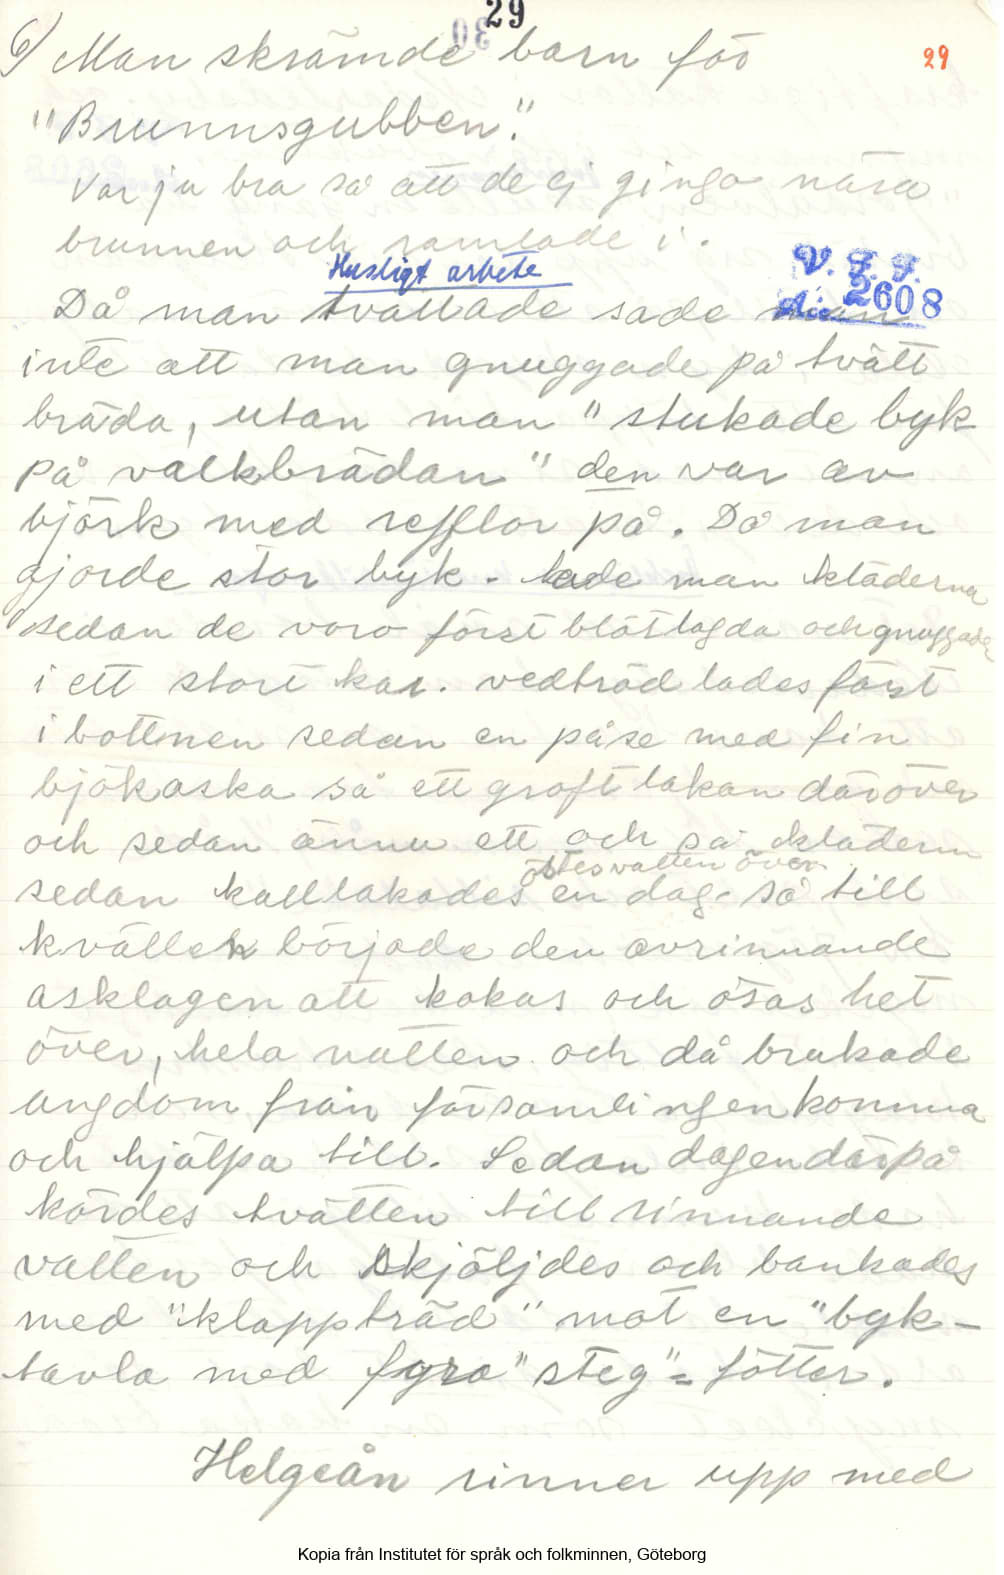 29
6) Man skrämde barn för
29
"Brunnsgubben".
Var ju bra så att de ej gingo nära
brunnen och ramlade i.
Husligt arbete
V. F. F.
Acc 2608
Då man tvättade sade man
inte att man gnuggade på tvätt
bräda, utan man "stukade byk
på valkbrädan" den var av
björk med refflor på. Då man
gjorde stor byk. lade man kläderna
sedan de voro först blötlagda och gnuggade
i ett stort kar. vedträd lades först
i bottnen sedan en påse med fin
bjökaska så ett groft lakan däröver
och sedan ännu ett och så kläderna
östes vatten över
sedan kallakades en dag. så till
kvällen började den avrinnande
asklagen att kokas och ösas het
över, hela natten och då brukade
ungdom från församlingen komma
och hjälpa till. Sedan dagen därpå
kördes tvätten till rinnande
vatten och skjöljdes och bankades
med "klappträd" mot en "byk-
tavla med fyra "steg" = fötter.
Helgeån rinner upp med
Kopia från Institutet för språk och folkminnen, Göteborg